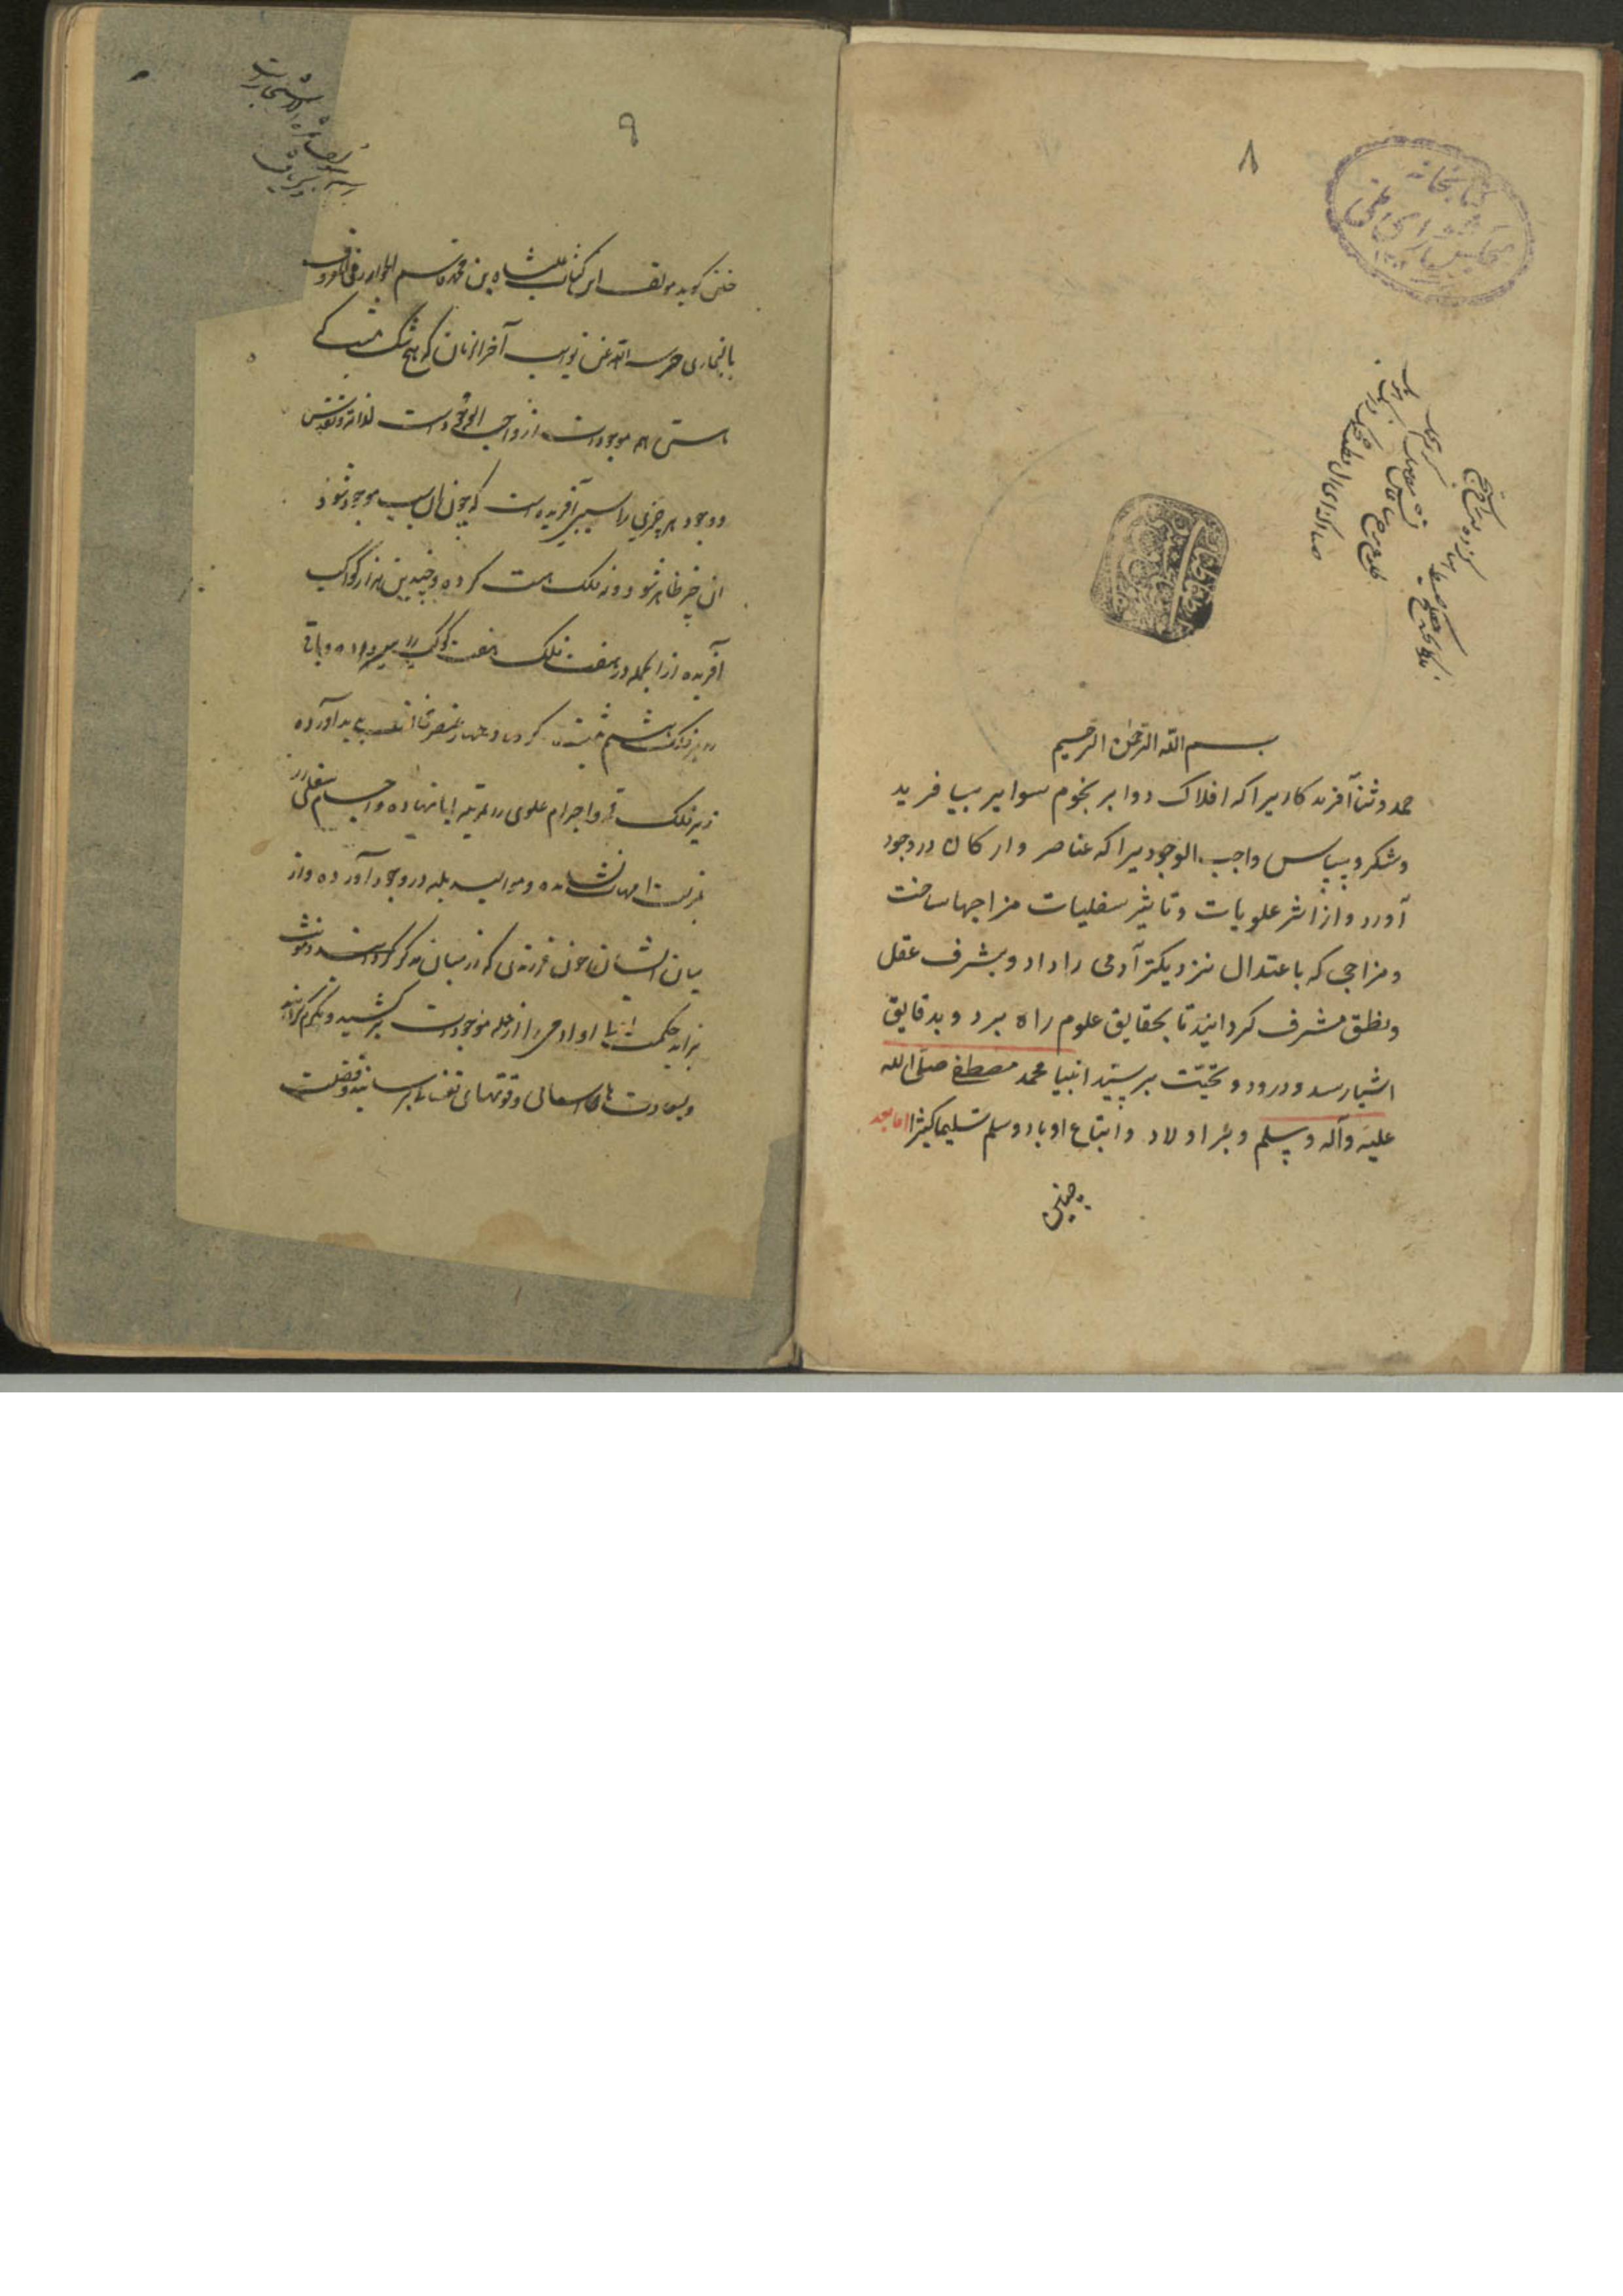 ۸
کتابخانه
مجلس شورای ملی
بسم الله الرحمن الرحیم
حمد و ثنا آفریدکاریرا که افلاک دوایر بنجوم سوایر بیافرید
وشکر وسپاس واجب الوجودیرا که عناصر وارکان در وجود
آورد واز اثر علویات وتاثیر سفلیات مزاجها ساخت
ومزاجی که باعتدال نزدیکتر آدمی را داد وبشرف عقل
ونطق مشرف کردانید تا بحقایق علوم راه برد وبدقایق
اشیا رسد ودرود وتحیّت بر سیّد انبیا محمد مصطفی صلی الله
علیه وآله وسلم وبر اولاد واتباع او باد وسلم تسلیما کثیرا اما بعد
چنین
۹
چنین کوید مولف این کتاب علیشاه بن محمد قاسم الخوارزمی المعروف
بالبخاری حرسه الله عن نوایب آخر الزمان که هیچ شک نیست که
هستی همه موجودات از واجب الوجود است لذاته وتقدس
ووجود هر چیزی را سببی آفریده است که چون آن سبب موجود شود
آن چیز ظاهر شود ونه فلک هست کرده وچندین هزار کواکب
آفریده از آنجمله در هفت فلک هفت کوکب را سیر داده وباقی
در فلک هشتم ثبت کرده وچهار عنصر مخالف پدید آورده
زیر فلک قمر واجرام علوی را بمرتبه آبا نهاده واجسام سفلی را
بمرتبت امهات نشانده وموالید ثلثه در وجود آورده واز
میان ایشان چون فرزندی که از میان مذکر ومونث
برآید حکمت او آدمی را از جمله موجودات برکشید ومکرم کردانید
وبسعادت های آسمانی وقوتهای نفسانی برسانید وفضلت